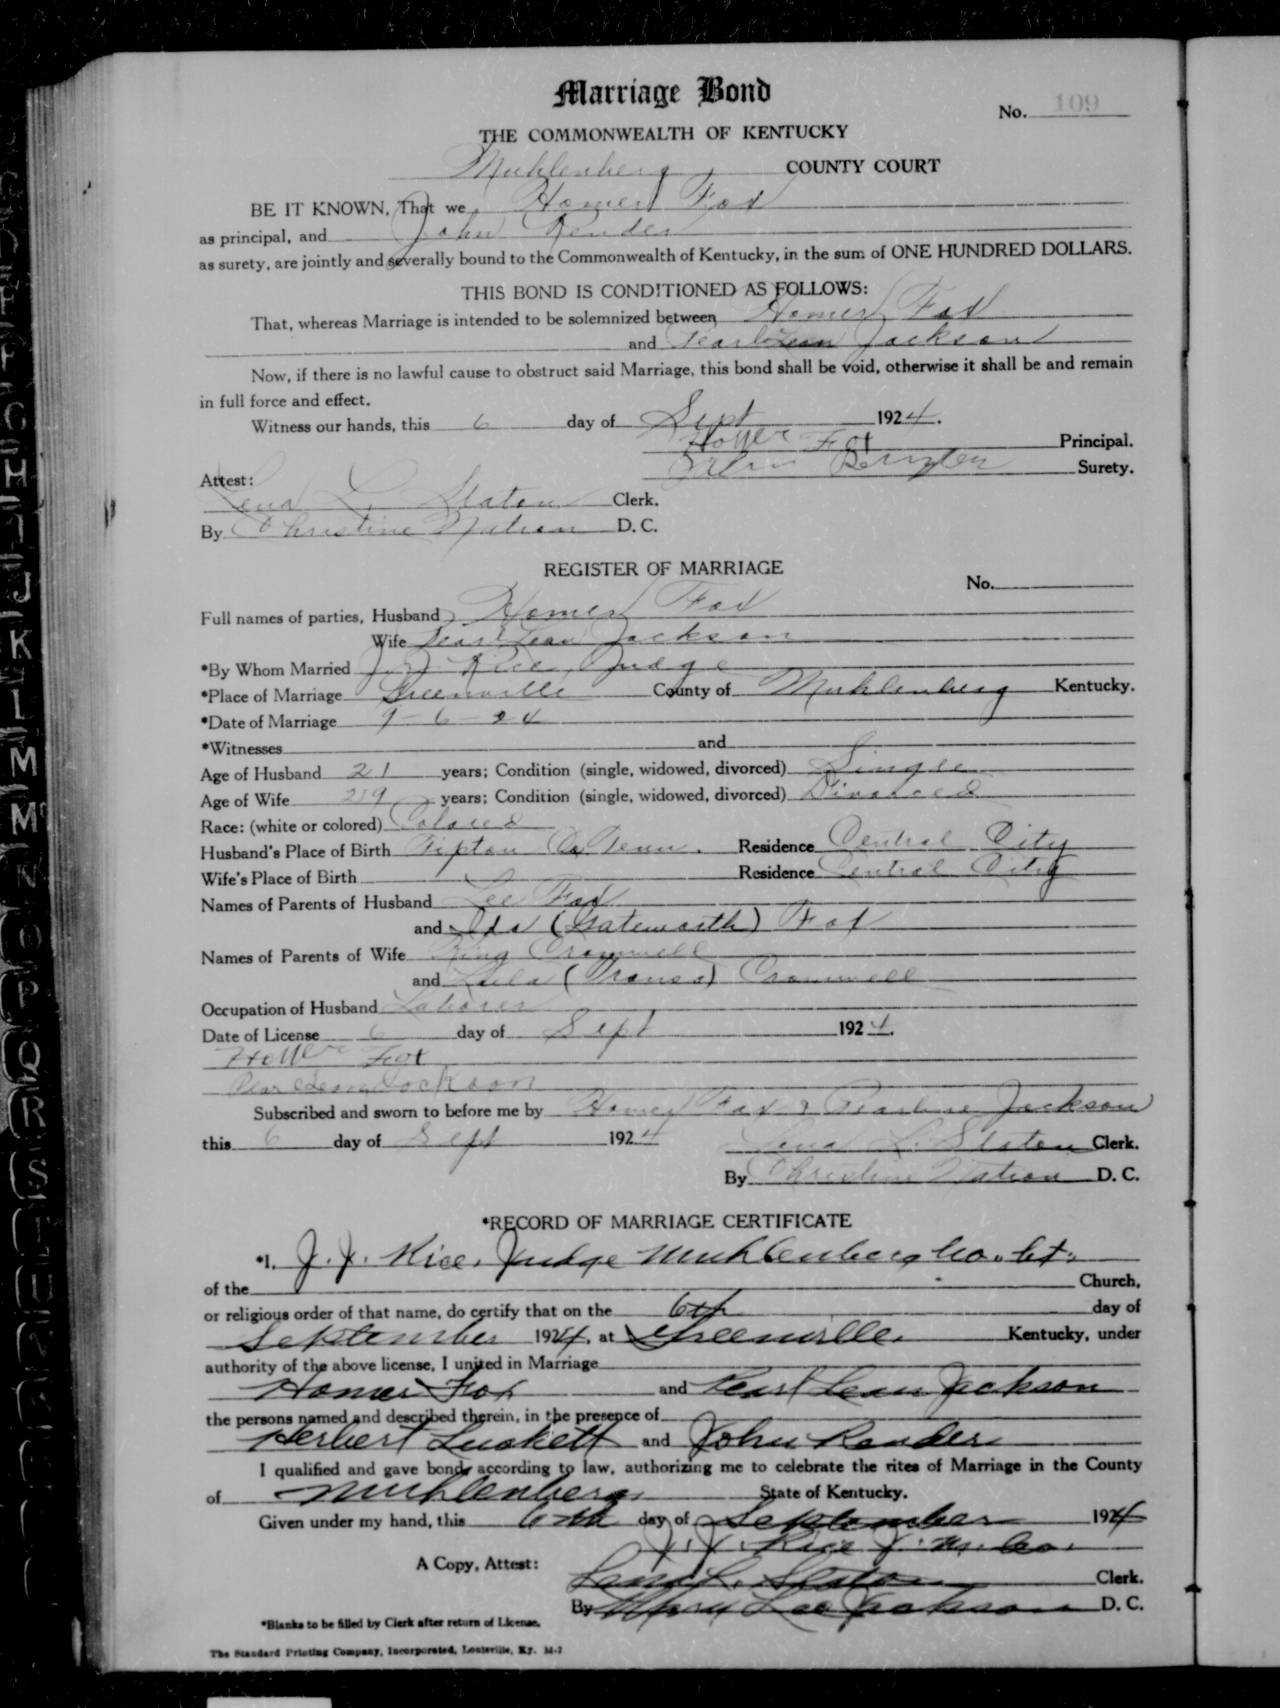 Marriage Bond
No. 109
THE COMMONWEALTH OF KENTUCKY
Muhlenberg COUNTY COURT
BE IT KNOWN, That we, Homer Fox
as principal, and John Render
as surety, are jointly and severally bound to the Commonwealth of Kentucky, in the sum of ONE HUNDRED DOLLARS.
THIS BOND IS CONDITIONED AS FOLLOWS:
That, whereas Marriage is intended to be solemnized between Homer Fox
and Pearl Lean Jackson
Now, if there is no lawful cause to obstruct said Marriage, this bond shall be void, otherwise it shall be and remain
in full force and effect.
Witness our hands, this 6 day of Sept 1924.
Homer Fox Principal.
Surety.
Attest:
Lena L. Slaton Clerk.
By Christine Nation D. C.
REGISTER OF MARRIAGE
No.
Full names of parties, Husband Homer Fox
Wife Pearl Lean Jackson
*By Whom Married J. J. Rice, Judge
*Place of Marriage Greenville County of Muhlenberg Kentucky.
*Date of Marriage 9-6-24
*Witnesses and
Age of Husband 21 years; Condition (single, widowed, divorced) Single
Age of Wife years; Condition (single, widowed, divorced) Divorced
Race: (white or colored) Colored
Husband's Place of Birth Tipton Co Tenn. Residence Central City
Wife's Place of Birth Residence Central City
Names of Parents of Husband Lee Fox
and Ida (Gateworth) Fox
Names of Parents of Wife King Cromwell
and Lula Cromwell
Occupation of Husband Laborer
Date of License 6 day of Sept 1924.
Homer Fox
Pearl Lean Jackson
Subscribed and sworn to before me by Homer Fox & Pearline Jackson
this 6 day of Sept 1924
Lena L. Slaton Clerk.
By Christine Nation D. C.
*RECORD OF MARRIAGE CERTIFICATE
*I, J. J. Rice, Judge Muhlenberg Co. Ct.
of the Church,
or religious order of that name, do certify that on the 6th day of
September 1924, at Greenville, Kentucky, under
authority of the above license, I united in Marriage
Homer Fox and Pearl Lean Jackson
the persons named and described therein, in the presence of
Herbert Luckett and John Render
I qualified and gave bond, according to law, authorizing me to celebrate the rites of Marriage in the County
of Muhlenberg State of Kentucky.
Given under my hand, this 6th day of September 1924
J. J. Rice J. M. Co.
A Copy, Attest:
Lena L. Slaton Clerk.
By Mary Lee Jackson D. C.
*Blanks to be filled by Clerk after return of License.
The Standard Printing Company, Incorporated, Louisville, Ky. M-7